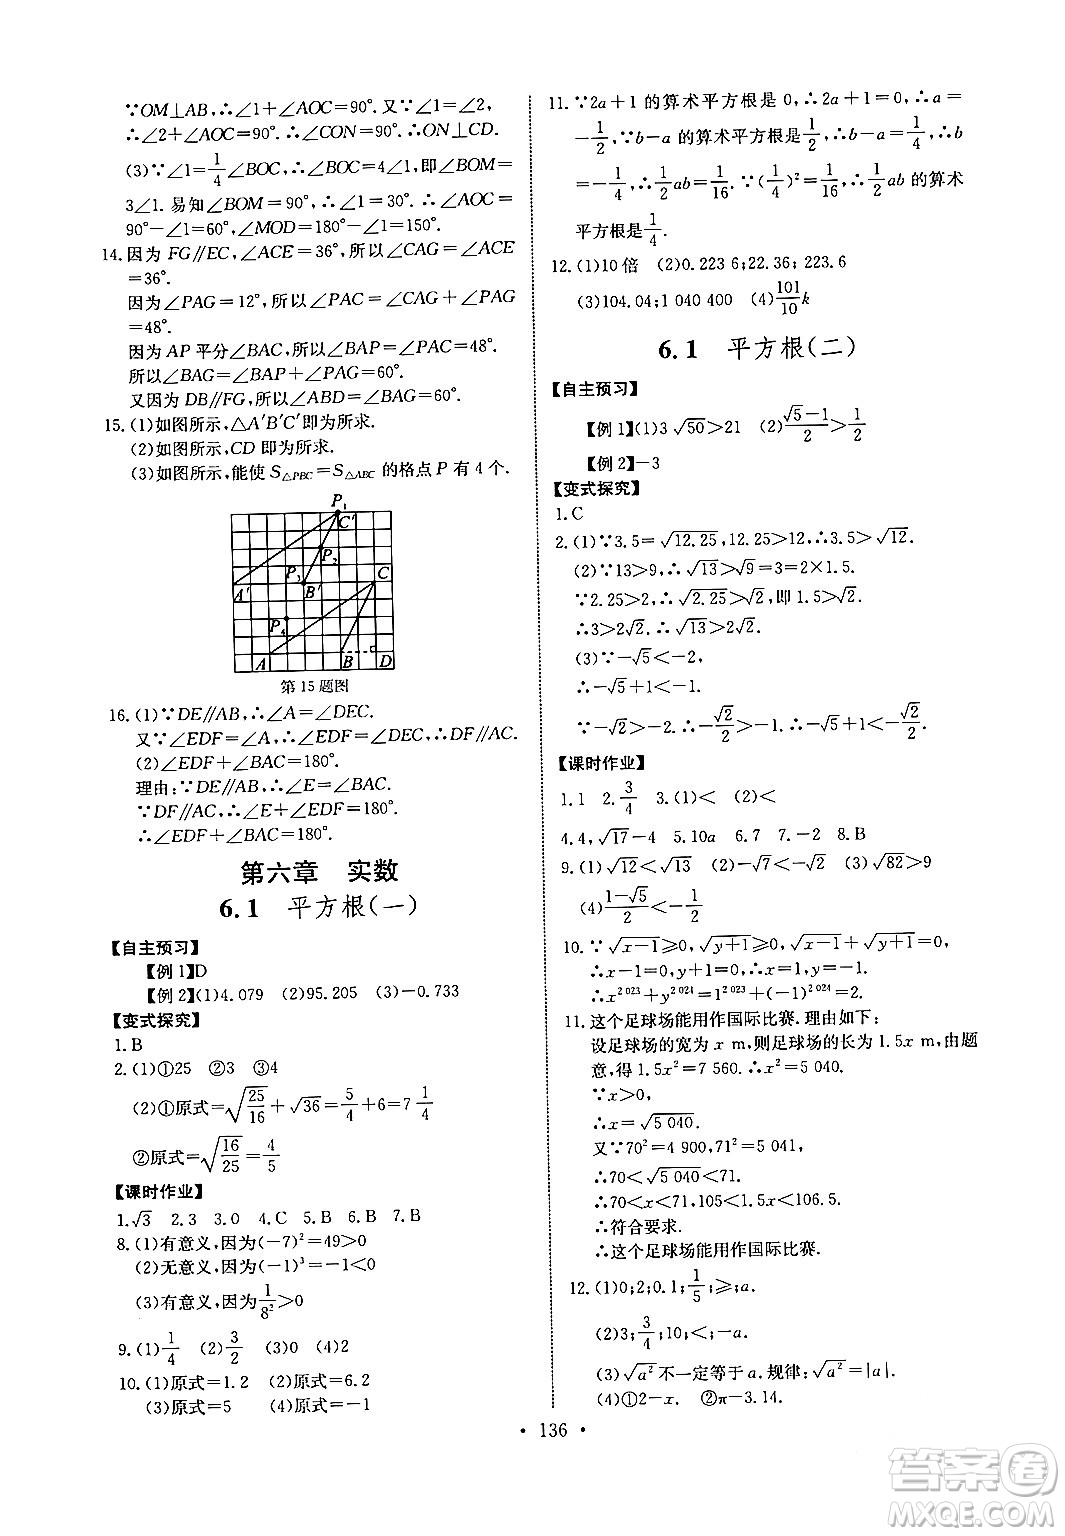 ∵OM⊥AB,∴∠1+∠AOC=90°.又∵∠1=∠2,
∴∠2+∠AOC=90°.∴∠CON=90°.∴ON⊥CD.
(3)∵∠1=1/4∠BOC,∴∠BOC=4∠1,即∠BOM=
3∠1.易知∠BOM=90°.∴∠1=30°.∴∠AOC=
90°-∠1=60°,∠MOD=180°-∠1=150°.
14.因为 FG∥EC,∠ACE=36°,所以∠CAG=∠ACE
=36°.
因为∠PAG=12°,所以∠PAC=∠CAG+∠PAG
=48°.
因为 AP 平分∠BAC,所以∠BAP=∠PAC=48°.
所以∠BAG=∠BAP+∠PAG=60°.
又因为 DB∥FG,所以∠ABD=∠BAG=60°.
15.(1)如图所示,△A′B′C′即为所求.
(2)如图所示,CD 即为所求.
(3)如图所示,能使 S△PBC=S△ABC 的格点 P 有 4 个.
P1
C′
P2
P3
C
A′
B′
P4
A
B
D
第 15 题图
16.(1)∵DE∥AB,∴∠A=∠DEC.
又∵∠EDF=∠A,∴∠EDF=∠DEC,∴DF∥AC.
(2)∠EDF+∠BAC=180°.
理由:∵DE∥AB,∴∠E=∠BAC.
∵DF∥AC,∴∠E+∠EDF=180°.
∴∠EDF+∠BAC=180°.
第六章 实数
6.1 平方根(一)
【自主预习】
【例 1】D
【例 2】(1)4.079 (2)95.205 (3)-0.733
【变式探究】
1.B
2.(1)①25 ②3 ③4
(2)①原式=√(25/16)+√36=5/4+6=7 1/4
②原式=√(16/25)=4/5
【课时作业】
1.√3 2.3 3.0 4.C 5.B 6.B 7.B
8.(1)有意义,因为(-7)²=49>0
(2)无意义,因为(-1)³=-1<0
(3)有意义,因为1/8²>0
9.(1)1/4 (2)3/2 (3)0 (4)2
10.(1)原式=1.2 (2)原式=6.2
(3)原式=5 (4)原式=1
11.∵2a+1 的算术平方根是 0,∴2a+1=0,∴a=
-1/2,∵b-a 的算术平方根是1/2,∴b-a=1/4,∴b
=-1/4,∴1/2ab=1/16.∵(1/4)²=1/16,∴1/2ab 的算术
平方根是1/4.
12.(1)10 倍 (2)0.223 6;22.36; 223.6
(3)104.04;1 040 400 (4)101/10 k
6.1 平方根(二)
【自主预习】
【例 1】(1)3√50>21 (2)(√5-1)/2>1/2
【例 2】-3
【变式探究】
1.C
2.(1)∵3.5=√12.25,12.25>12,∴3.5>√12.
(2)∵13>9,∴√13>√9=3=2×1.5.
∵2.25>2,∴√2.25>√2,即 1.5>√2.
∴3>2√2.∴√13>2√2.
(3)∵-√5<-2,
∴-√5+1<-1.
∵-√2>-2,∴-√2/2>-1.∴-√5+1<-√2/2.
【课时作业】
1.1 2.3/4 3.(1)< (2)<
4.4,√17-4 5.10a 6.7 7.-2 8.B
9.(1)√12<√13 (2)-√7<-√2 (3)√82>9
(4)(1-√5)/2<-1/2
10.∵√(x-1)≥0,√(y+1)≥0,√(x-1)+√(y+1)=0,
∴x-1=0,y+1=0,∴x=1,y=-1.
∴x²⁰²³+y²⁰²⁴=1²⁰²³+(-1)²⁰²⁴=2.
11.这个足球场能用作国际比赛.理由如下:
设足球场的宽为 x m,则足球场的长为 1.5x m,由题
意,得 1.5x²=7 560.∴x²=5 040.
∵x>0,
∴x=√(5 040).
又∵70²=4 900,71²=5 041,
∴70<√(5 040)<71.
∴70<x<71,105<1.5x<106.5.
∴符合要求.
∴这个足球场能用作国际比赛.
12.(1)0;2;0.1;1/5;≥;a.
(2)3;3/4;10;<;-a.
(3)√a²不一定等于 a.规律:√a²=|a|.
(4)①2-x. ②π-3.14.
• 136 •
答案圈
MXQE.COM